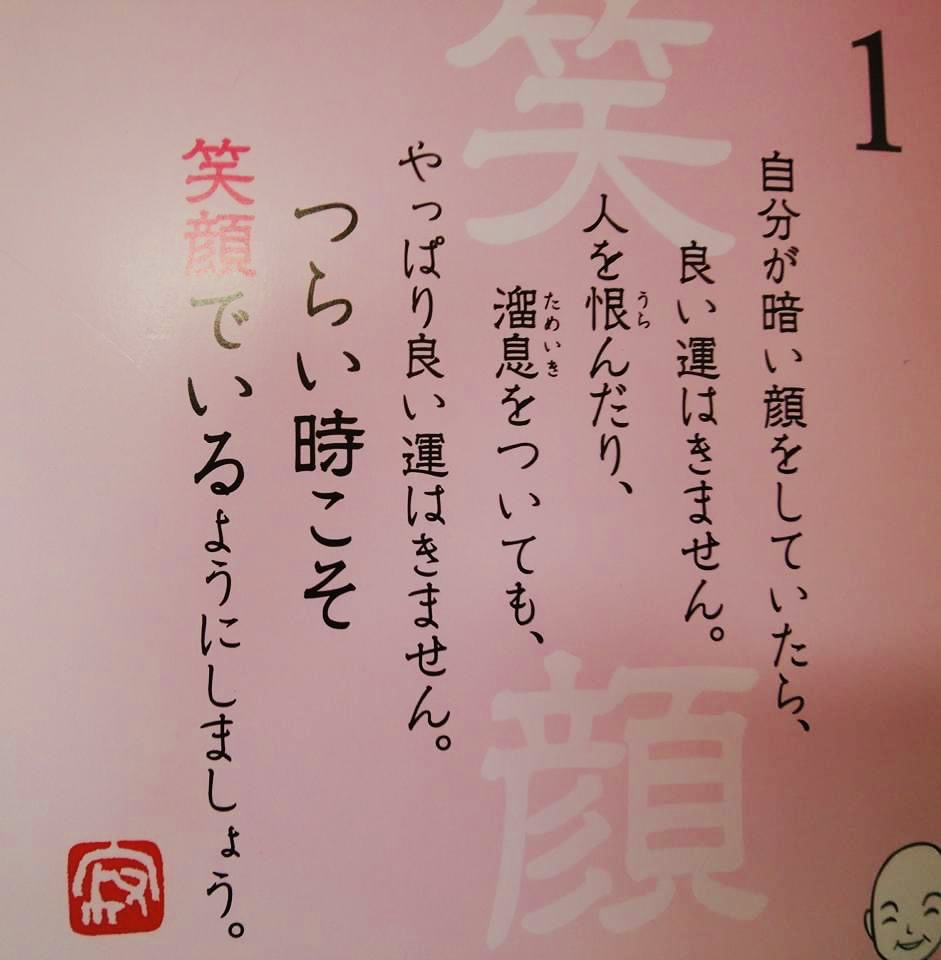 1
自分が暗い顔をしていたら、
良い運はきません。
人を恨んだり、
うら
溜息をついても、
ためいき
やっぱり良い運はきません。
つらい時こそ
笑顔でいるようにしましょう。
笑顔